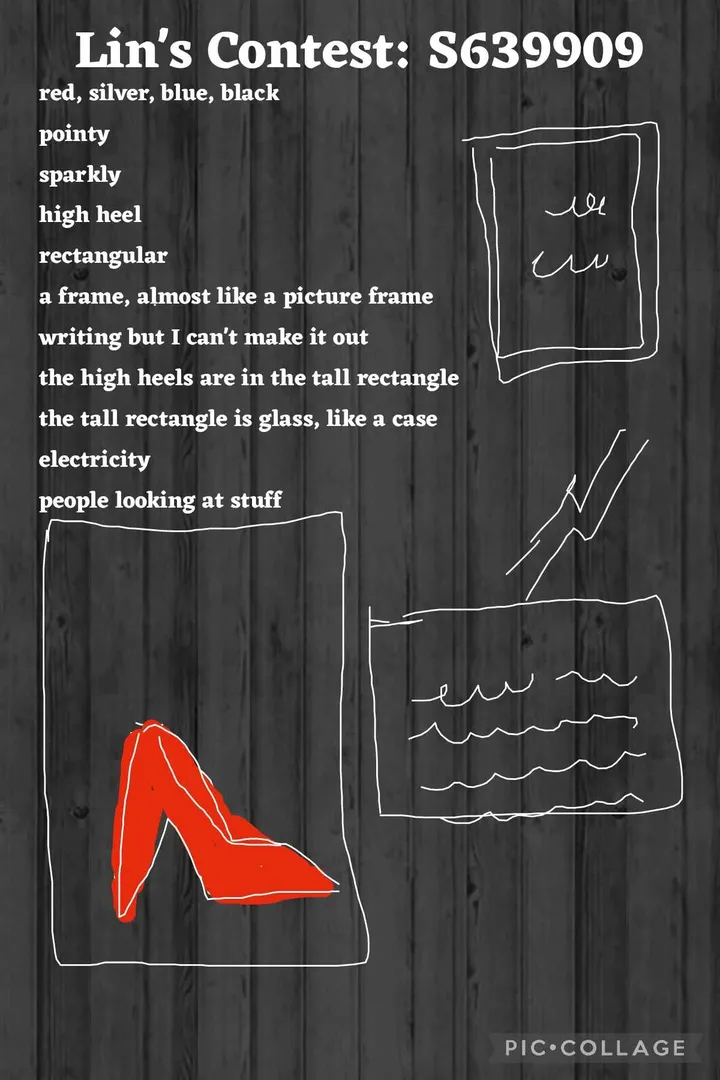 Lin's Contest: S639909
red, silver, blue, black
pointy
sparkly
high heel
rectangular
a frame, almost like a picture frame
writing but I can't make it out
the high heels are in the tall rectangle
the tall rectangle is glass, like a case
electricity
people looking at stuff
PIC•COLLAGE